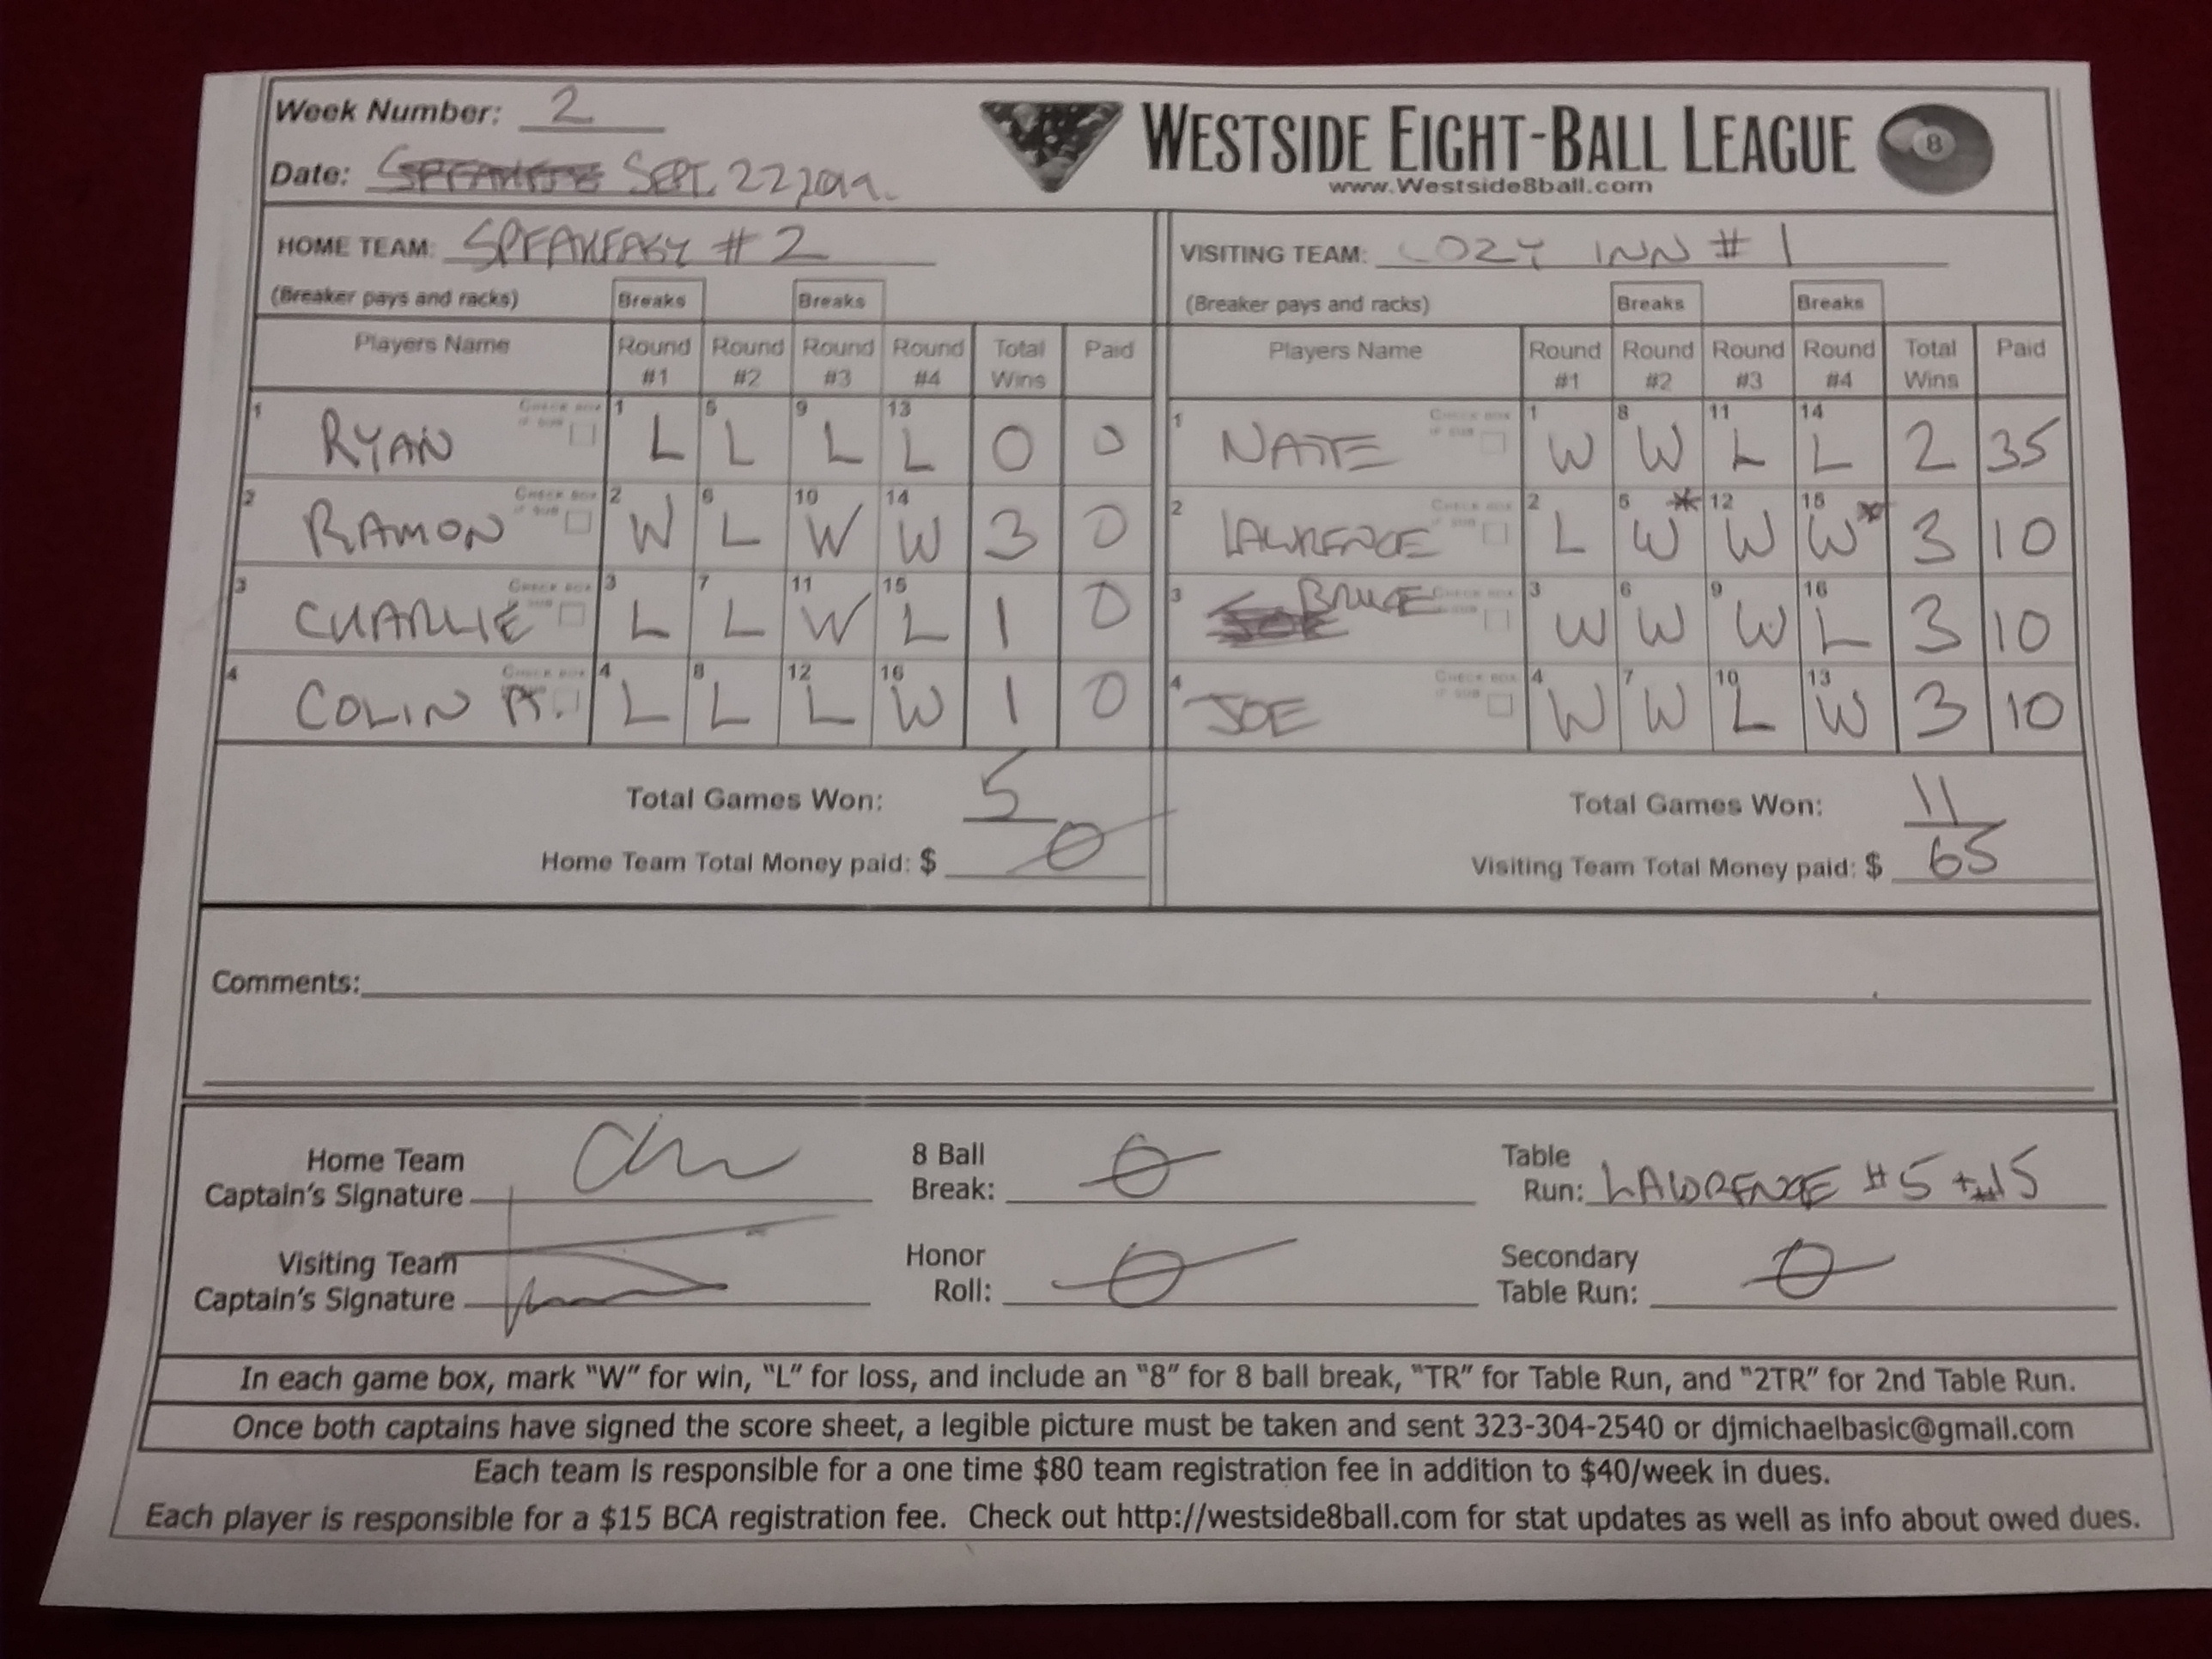 Week Number: 2
WESTSIDE EIGHT-BALL LEAGUE 8
www.Westside8ball.com
Date: SEPT. 22,
HOME TEAM: SPEAKEASY #2 VISITING TEAM: COZY INN #1
(Breaker pays and racks) Breaks Breaks (Breaker pays and racks) Breaks Breaks
Players Name Round #1 Round #2 Round #3 Round #4 Total Wins Paid Players Name Round #1 Round #2 Round #3 Round #4 Total Wins Paid
1 RYAN CHECK BOX IF SUB 1 L 5 L 9 L 13 L 0 0 1 NATE CHECK BOX IF SUB 1 W 8 W 11 L 14 L 2 35
2 RAMON CHECK BOX IF SUB 2 W 6 L 10 W 14 W 3 0 2 LAWRENCE CHECK BOX IF SUB 2 L 5 W * 12 W 15 W * 3 10
3 CHARLIE CHECK BOX IF SUB 3 L 7 L 11 W 15 L 1 0 3 BRUCE CHECK BOX IF SUB 3 W 6 W 9 W 16 L 3 10
4 COLIN CHECK BOX 4 L 8 L 12 L 16 W 1 0 4 JOE CHECK BOX IF SUB 4 W 7 W 10 L 13 W 3 10
Total Games Won: 5 Total Games Won: 11
Home Team Total Money paid: $ 0 Visiting Team Total Money paid: $ 65
Comments:
Home Team Captain's Signature 8 Ball Break: 0 Table Run: LAWRENCE #5 + #15
Visiting Team Captain's Signature Honor Roll: 0 Secondary Table Run: 0
In each game box, mark "W" for win, "L" for loss, and include an "8" for 8 ball break, "TR" for Table Run, and "2TR" for 2nd Table Run.
Once both captains have signed the score sheet, a legible picture must be taken and sent 323-304-2540 or djmichaelbasic@gmail.com
Each team is responsible for a one time $80 team registration fee in addition to $40/week in dues.
Each player is responsible for a $15 BCA registration fee. Check out http://westside8ball.com for stat updates as well as info about owed dues.